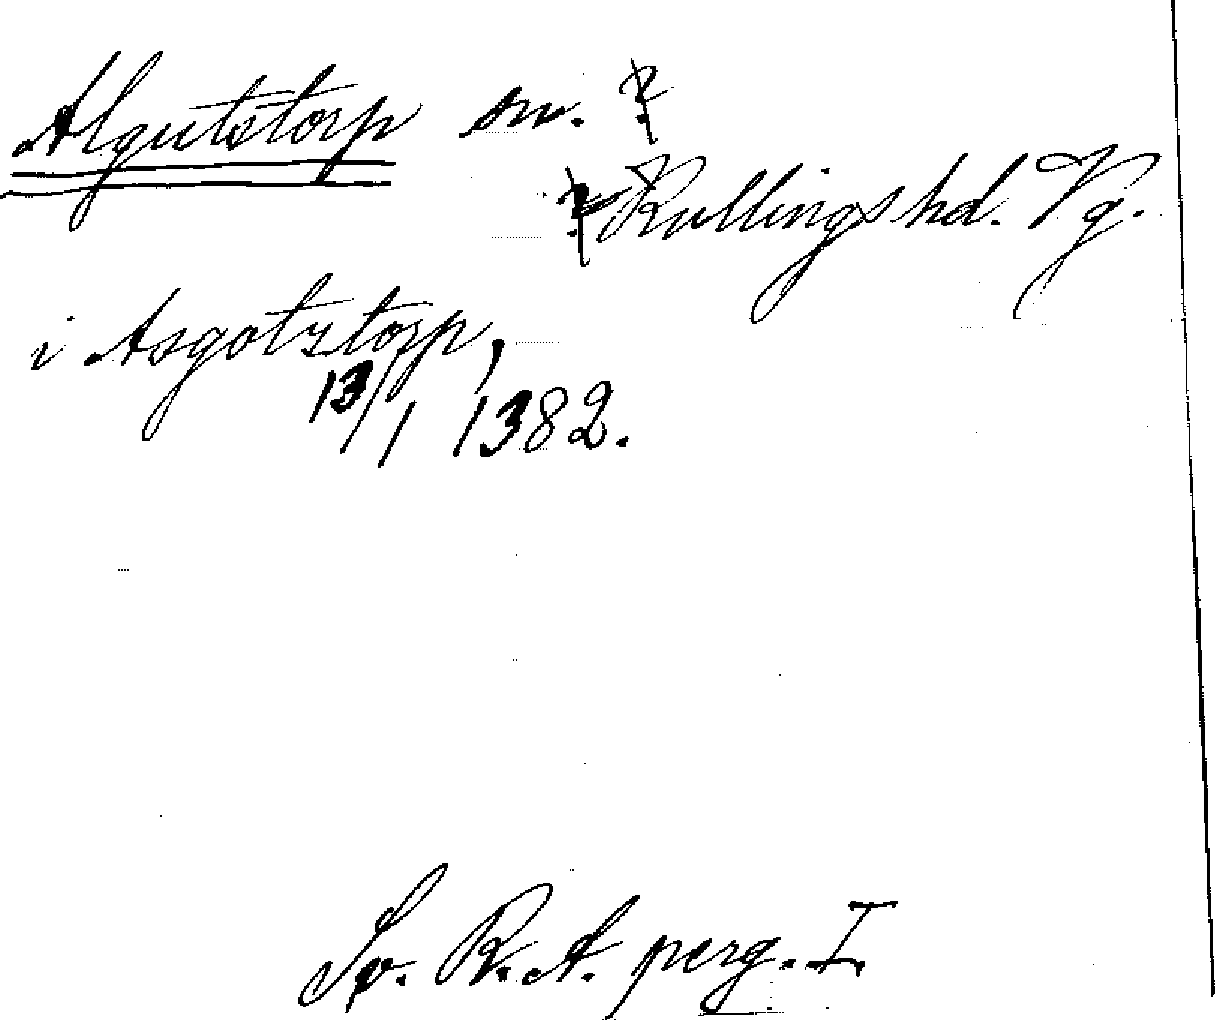 Algutstorp sn.
Kullings hd. Vg.
i Asgotztorp,
13/1 1382.
Sv. R. A. perg. I.